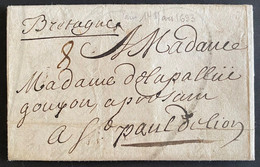 Bretagne
8 A Madame
Madame delapallüe
gouyon a
a St paul de lion